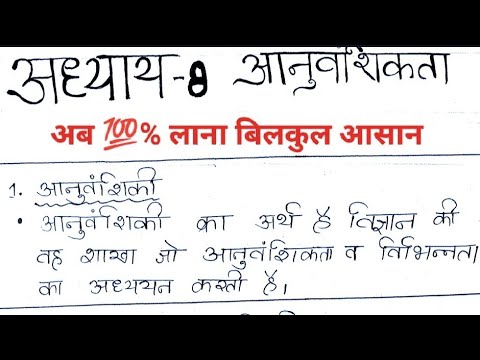 अध्याय-8 आनुवंशिकता
अब 💯% लाना बिलकुल आसान
1. आनुवंशिकी
• आनुवंशिकी का अर्थ है विज्ञान की
वह शाखा जो आनुवंशिकता व विभिन्नता
का अध्ययन करती है।